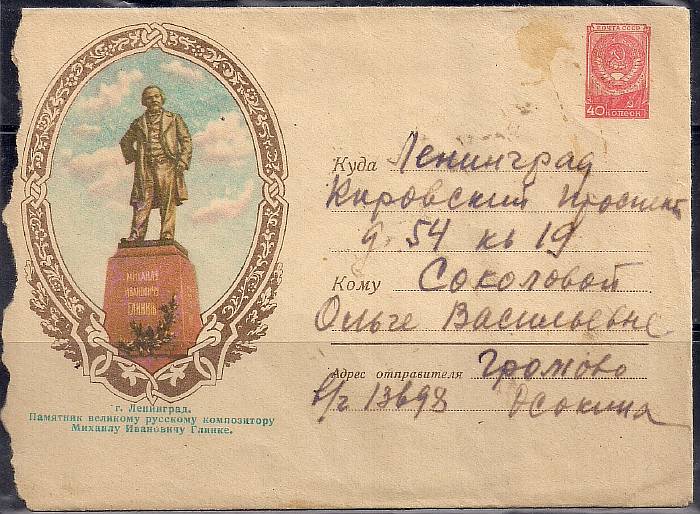 ПОЧТА СССР
40 КОПЕЕК
МИХАИЛУ
ИВАНОВИЧУ
ГЛИНКЕ
г. Ленинград.
Памятник великому русскому композитору
Михаилу Ивановичу Глинке.
Куда Ленинград
Кировский проспект
д. 54 кв 19
Кому Соколовой
Ольге Васильевне
Адрес отправителя Громово
в/ч 13698 Осокина